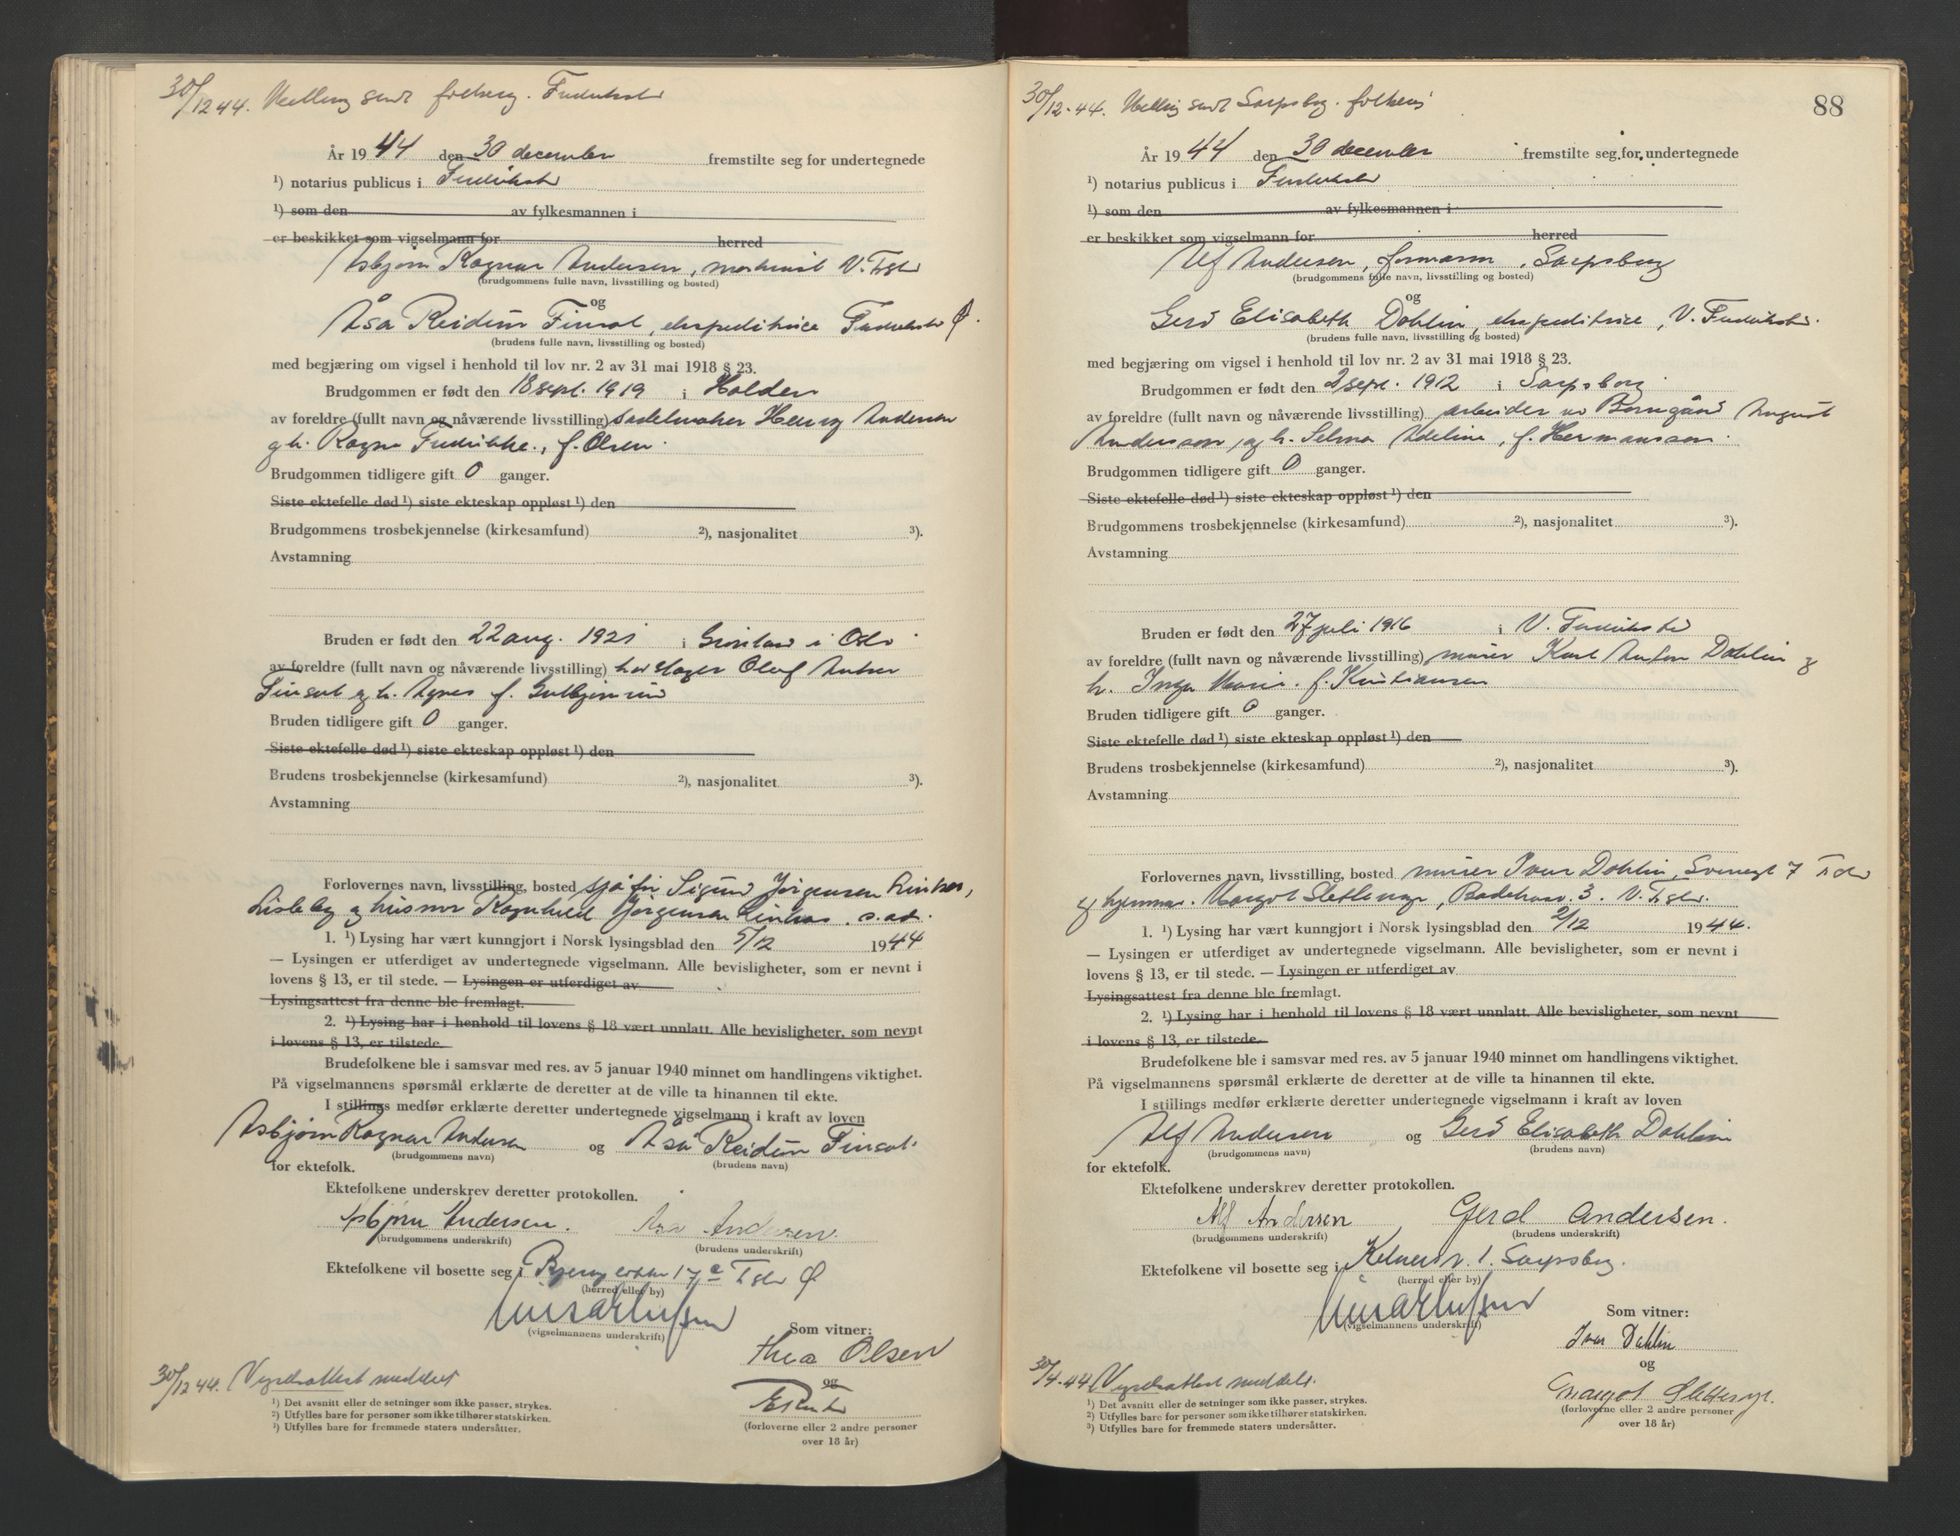 30/12 44. Melding sendt folkereg. Fredrikstad
År 1944 den 30 december fremstilte seg for undertegnede
¹) notarius publicus i Fredrikstad
¹) som den av fylkesmannen i
er beskikket som vigselmann for herred
Asbjørn Ragnar Andersen, maskinist V. Fr.stad
(brudgommens fulle navn, livsstilling og bosted)
og
Åsa Reidun Finsal, ekspeditrise Fredrikstad Ø.
(brudens fulle navn, livsstilling og bosted)
med begjæring om vigsel i henhold til lov nr. 2 av 31 mai 1918 § 23.
Brudgommen er født den 18 sept. 1919 i Halden
av foreldre (fullt navn og nåværende livsstilling) sadelmaker Henry Andersen
og h. Ragna Fredrikke, f. Olsen.
Brudgommen tidligere gift 0 ganger.
Siste ektefelle død ¹) siste ekteskap oppløst ¹) den
Brudgommens trosbekjennelse (kirkesamfund) ²), nasjonalitet ³).
Avstamning
Bruden er født den 22 aug. 1921 i i Oslo
av foreldre (fullt navn og nåværende livsstilling) Olaf
Finsal og h. Agnes f.
Bruden tidligere gift 0 ganger.
Siste ektefelle død ¹) siste ekteskap oppløst ¹) den
Brudens trosbekjennelse (kirkesamfund) ²), nasjonalitet ³).
Avstamning
Forlovernes navn, livsstilling, bosted sjåfør Sigurd Jørgensen
Lisleby og husmor Ragnhild Jørgensen s. ad.
1. ¹) Lysing har vært kunngjort i Norsk lysingsblad den 5/12 1944
— Lysingen er utferdiget av undertegnede vigselmann. Alle bevisligheter, som er nevnt i
lovens § 13, er til stede. — Lysingen er utferdiget av
Lysingsattest fra denne ble fremlagt.
2. ¹) Lysing har i henhold til lovens § 18 vært unnlatt. Alle bevisligheter, som nevnt
i lovens § 13, er tilstede.
Brudefolkene ble i samsvar med res. av 5 januar 1940 minnet om handlingens viktighet.
På vigselmannens spørsmål erklærte de deretter at de ville ta hinannen til ekte.
I stillings medfør erklærte deretter undertegnede vigselmann i kraft av loven
Asbjørn Ragnar Andersen og Åsa Reidun Finsal
(brudgommens navn) (brudens navn)
for ektefolk.
Ektefolkene underskrev deretter protokollen.
Asbjørn Andersen. Åsa Andersen.
(brudgommens underskrift) (brudens underskrift)
Ektefolkene vil bosette seg i 17 Ø
(herred eller by)
(vigselmannens underskrift)
Som vitner:
Thea Olsen
og
30/12 44. Vigselsattest meddelt
(forloverne eller 2 andre personer
over 18 år)
¹) Det avsnitt eller de setninger som ikke passer, strykes.
²) Utfylles bare for personer som ikke tilhører statskirken.
³) Utfylles bare for fremmede staters undersåtter.
88
30/12-44. Melding sendt Sarpsborg folkereg
År 1944 den 30 december fremstilte seg for undertegnede
¹) notarius publicus i Fredrikstad
¹) som den av fylkesmannen i
er beskikket som vigselmann for herred
Alf Andersen, formann, Sarpsborg
(brudgommens fulle navn, livsstilling og bosted)
og
Gerd Elisabeth Dahlin, ekspeditrise, V. Fredrikstad.
(brudens fulle navn, livsstilling og bosted)
med begjæring om vigsel i henhold til lov nr. 2 av 31 mai 1918 § 23.
Brudgommen er født den 2 sept. 1912 i Sarpsborg
av foreldre (fullt navn og nåværende livsstilling) arbeider v. Borregård August
Andersson, og h. Selma Adelina, f. Hermansson.
Brudgommen tidligere gift 0 ganger.
Siste ektefelle død ¹) siste ekteskap oppløst ¹) den
Brudgommens trosbekjennelse (kirkesamfund) ²), nasjonalitet ³).
Avstamning
Bruden er født den 27 juli 1916 i V. Fredrikstad
av foreldre (fullt navn og nåværende livsstilling) murer Karl Anton Dahlin og
h. Inga Marie. f. Kristiansen
Bruden tidligere gift 0 ganger.
Siste ektefelle død ¹) siste ekteskap oppløst ¹) den
Brudens trosbekjennelse (kirkesamfund) ²), nasjonalitet ³).
Avstamning
Forlovernes navn, livsstilling, bosted murer Ivar Dahlin, 7
og hjemmev. Margot 3. V. Fr.stad.
1. ¹) Lysing har vært kunngjort i Norsk lysingsblad den 2/12 1944.
— Lysingen er utferdiget av undertegnede vigselmann. Alle bevisligheter, som er nevnt i
lovens § 13, er til stede. — Lysingen er utferdiget av
Lysingsattest fra denne ble fremlagt.
2. ¹) Lysing har i henhold til lovens § 18 vært unnlatt. Alle bevisligheter, som nevnt
i lovens § 13, er tilstede.
Brudefolkene ble i samsvar med res. av 5 januar 1940 minnet om handlingens viktighet.
På vigselmannens spørsmål erklærte de deretter at de ville ta hinannen til ekte.
I stillings medfør erklærte deretter undertegnede vigselmann i kraft av loven
Alf Andersen og Gerd Elisabeth Dahlin
(brudgommens navn) (brudens navn)
for ektefolk.
Ektefolkene underskrev deretter protokollen.
Alf Andersen Gerd Andersen.
(brudgommens underskrift) (brudens underskrift)
Ektefolkene vil bosette seg i 1. Sarpsborg.
(herred eller by)
(vigselmannens underskrift)
Som vitner:
Ivar Dahlin
og
30/4-44 Vigselsattest meddelt.
Margot
(forloverne eller 2 andre personer
over 18 år)
¹) Det avsnitt eller de setninger som ikke passer, strykes.
²) Utfylles bare for personer som ikke tilhører statskirken.
³) Utfylles bare for fremmede staters undersåtter.